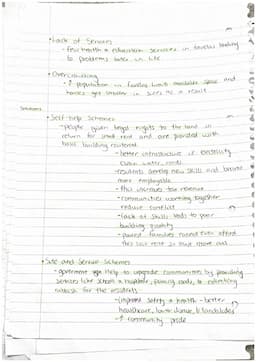 • Lack of Services
- few health & education services in favelas leading
to problems later in life
• Overcrowding
- ↑ population in favelas worth available space and
houses get smaller in size as a result
Solutions
• Self-help Schemes
- people given legal rights to the land in
return for small rent and are provided with
basic building material
- better infrastructure ie electricity
clean water, roads
- residents develop new skills and become
more employable
- this increases tax revenue
- communities working together
reduce conflict
- lack of skills leads to poor
building quality
- poorest families cannot even afford
this low rent so miss out
• Site and Service Schemes
- government help to upgrade communities by providing
services like schools & hospitals, paving roads, to collecting
rubbish for the residents
- improved safety & health - better
healthcare, lower crime, ↓ landslides
- ↑ community pride